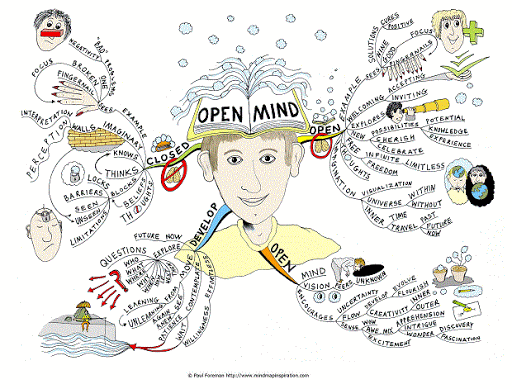 OPEN MIND
CLOSED
THINKS
KNOWS
BELIEFS
BLOCKS
LOCKS
BARRIERS
SEEN
UNSEEN
LIMITATIONS
WALLS
IMAGINARY
PERCEPTION
INTERPRETATION
EXAMPLE
SEE
FOCUS
BROKEN ONE
FINGERNAIL
NEGATIVITY
"BAD"
PROBLEMS
OPEN
EXAMPLE
SEES
NINE
GOOD
FINGERNAILS
FOCUS
SOLUTIONS
CURES
POSITIVE
WELCOMING
ACCEPTING
INVITING
EXPLORES
NEW
POSSIBILITIES
POTENTIAL
KNOWLEDGE
EXPERIENCE
CHERISH
CELEBRATE
FREE
THOUGHTS
INFINITE
LIMITLESS
FREEDOM
VISUALIZATION
UNIVERSE
WITHIN
WITHOUT
INNER
TIME
TRAVEL
PAST
FUTURE
NOW
DEVELOP
MOVE
FUTURE NOW
EXPLORE
QUESTIONS
WHO
WHAT
WHERE
WHY
LEARNING
UNLEARNING
FROM
AGAIN
ANEW
SEE
PATIENCE
WAIT
CONTEMPLATE
WILLINGNESS
OPEN
MIND
VISION
FEEL
UNKNOWN
UNCERTAINTY
FLOW
DEVELOP
EVOLVE
FLOURISH
CREATIVITY
INNER
OUTER
SENSE
WOW
AWE
MIX
APPREHENSION
EXCITEMENT
INTRIGUE
WONDER
DISCOVERY
FASCINATION
© Paul Foreman http://www.mindmapinspiration.com